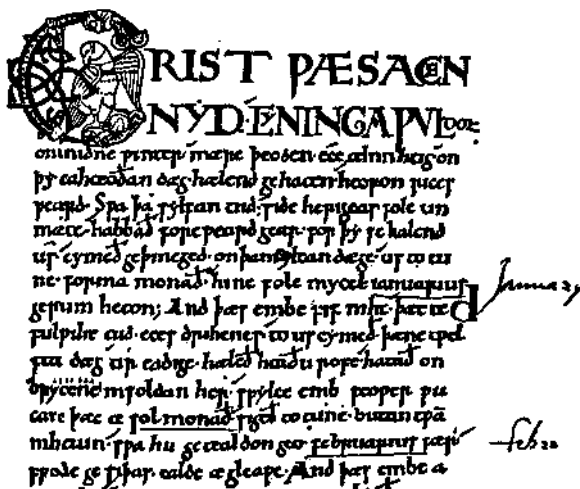 CRIST ǷÆS ACEN
NYD·CYNINGA ǷULDOR·
on midne ƿinter· mære þeoden· ece ælmihtig· on
þy eahteoðan dæg· hælend gehaten heofon rices
ƿeard· Sƿa þa sylfan tiid· side herigeas folc un
mæte· habbað foreƿeard gear· for þy se kalend
us cymeð geþincged· on þam ylcan dæge· us to tu
ne· forma monað· hine folc mycel ianuarius
gerum heton; And þæs embe fif niht· þætte
fulƿiht tiid eces drihtnes to us cymeð· þæne tƿel
fta dæg tir eadige· hæleð heaðu rofe· hatað on
brytene in foldan her· sƿylce emb feoƿer ƿu
can þætte solmonað sigeð to tune· butan tƿam
nihtum· sƿa hit getealdon geo februarius fær·
frode gesiþas· ealde ægleaƿe· And þæs embe a